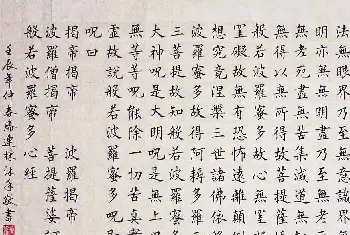 法無眼界乃至無意識界
明亦無無明盡乃至無老
無老死盡無苦集滅道無
無得以無所得故菩提薩
般若波羅蜜多故心無罣
罣礙故無有恐怖遠離顛倒
想究竟涅槃三世諸佛依
波羅蜜多故得阿耨多羅
三菩提故知般若波羅蜜多
大神呪是大明呪是無上
無等呪能除一切苦真實
虛故說般若波羅蜜多呪
呪曰
揭帝揭帝 波羅揭帝
波羅僧揭帝 菩提薩婆
般若波羅蜜多心經
壬辰年仲春 敬書